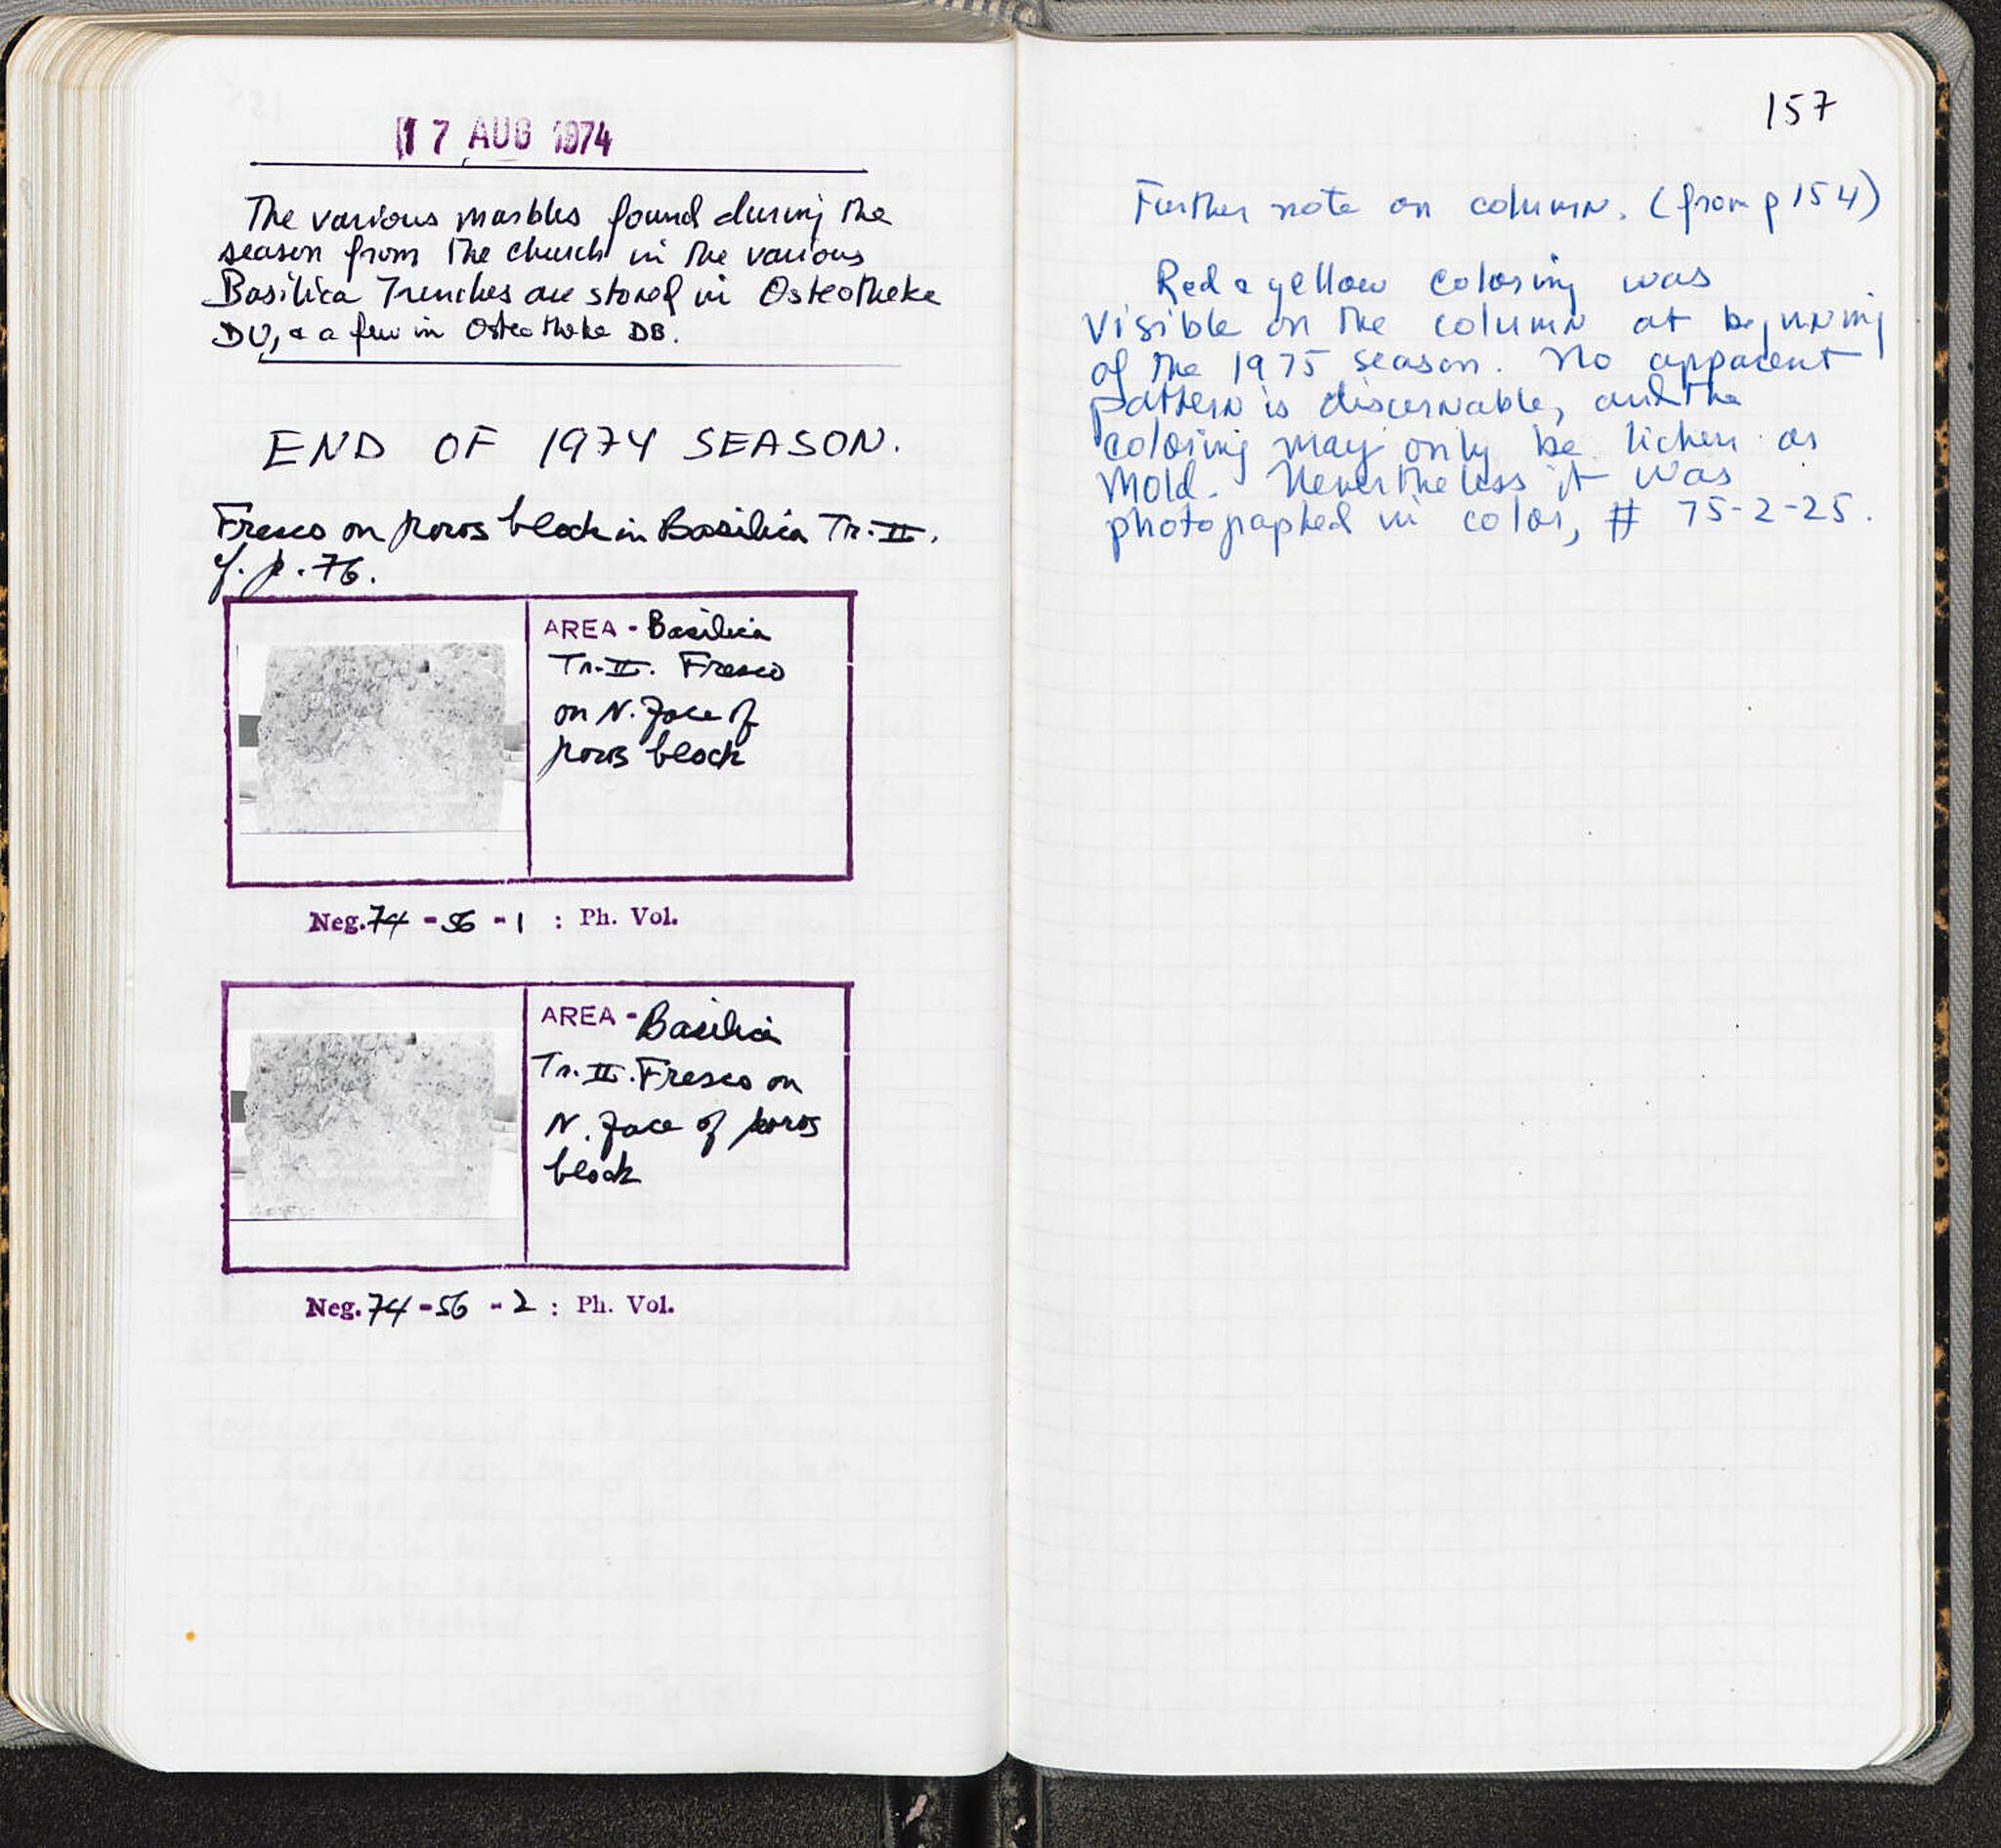 17 AUG 1974
The various marbles found during the
season from the church in the various
Basilica Trenches are stored in Osteotheke
DU, & a few in Osteotheke DB.
END OF 1974 SEASON.
Fresco on poros block in Basilica Tr. II.
cf. p. 76.
AREA - Basilica
Tr. II. Fresco
on N. face of
poros block
Neg. 74 - 56 - 1 : Ph. Vol.
AREA - Basilica
Tr. II. Fresco on
N. face of poros
block
Neg. 74 - 56 - 2 : Ph. Vol.
157
Further note on column. (from p 154)
Red & yellow coloring was
visible on the column at beginning
of the 1975 season. No apparent
pattern is discernable, and the
coloring may only be lichen or
mold. Nevertheless it was
photographed in color, # 75-2-25.